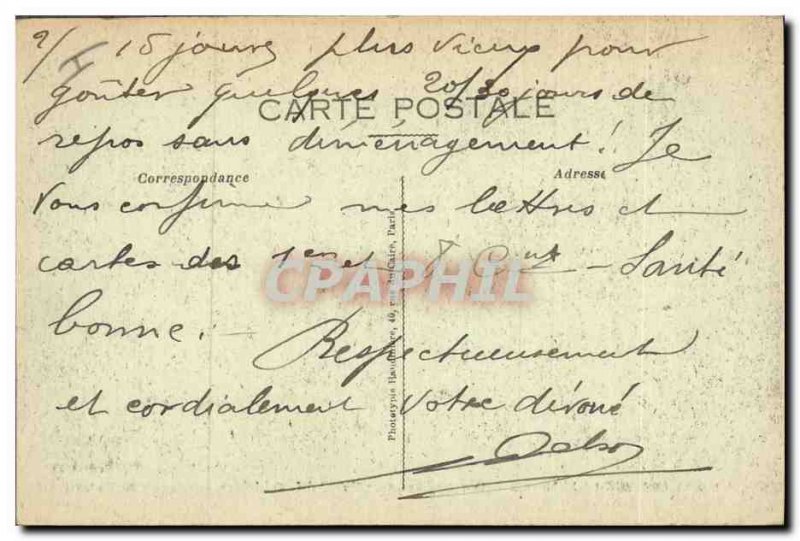 2/ 15 jours plus vieux pour
goûter quelques 20/30 jours de
CARTE POSTALE
repos sans déménagement! Je
Correspondance
Adresse
vous confirme mes lettres et
cartes des 1er et 8 Cnt – Santé
CPAPHIL
bonne. –
Respectueusement
et cordialement Votre dévoué
Phototypie Baudinière, 40, rue du Caire, Paris